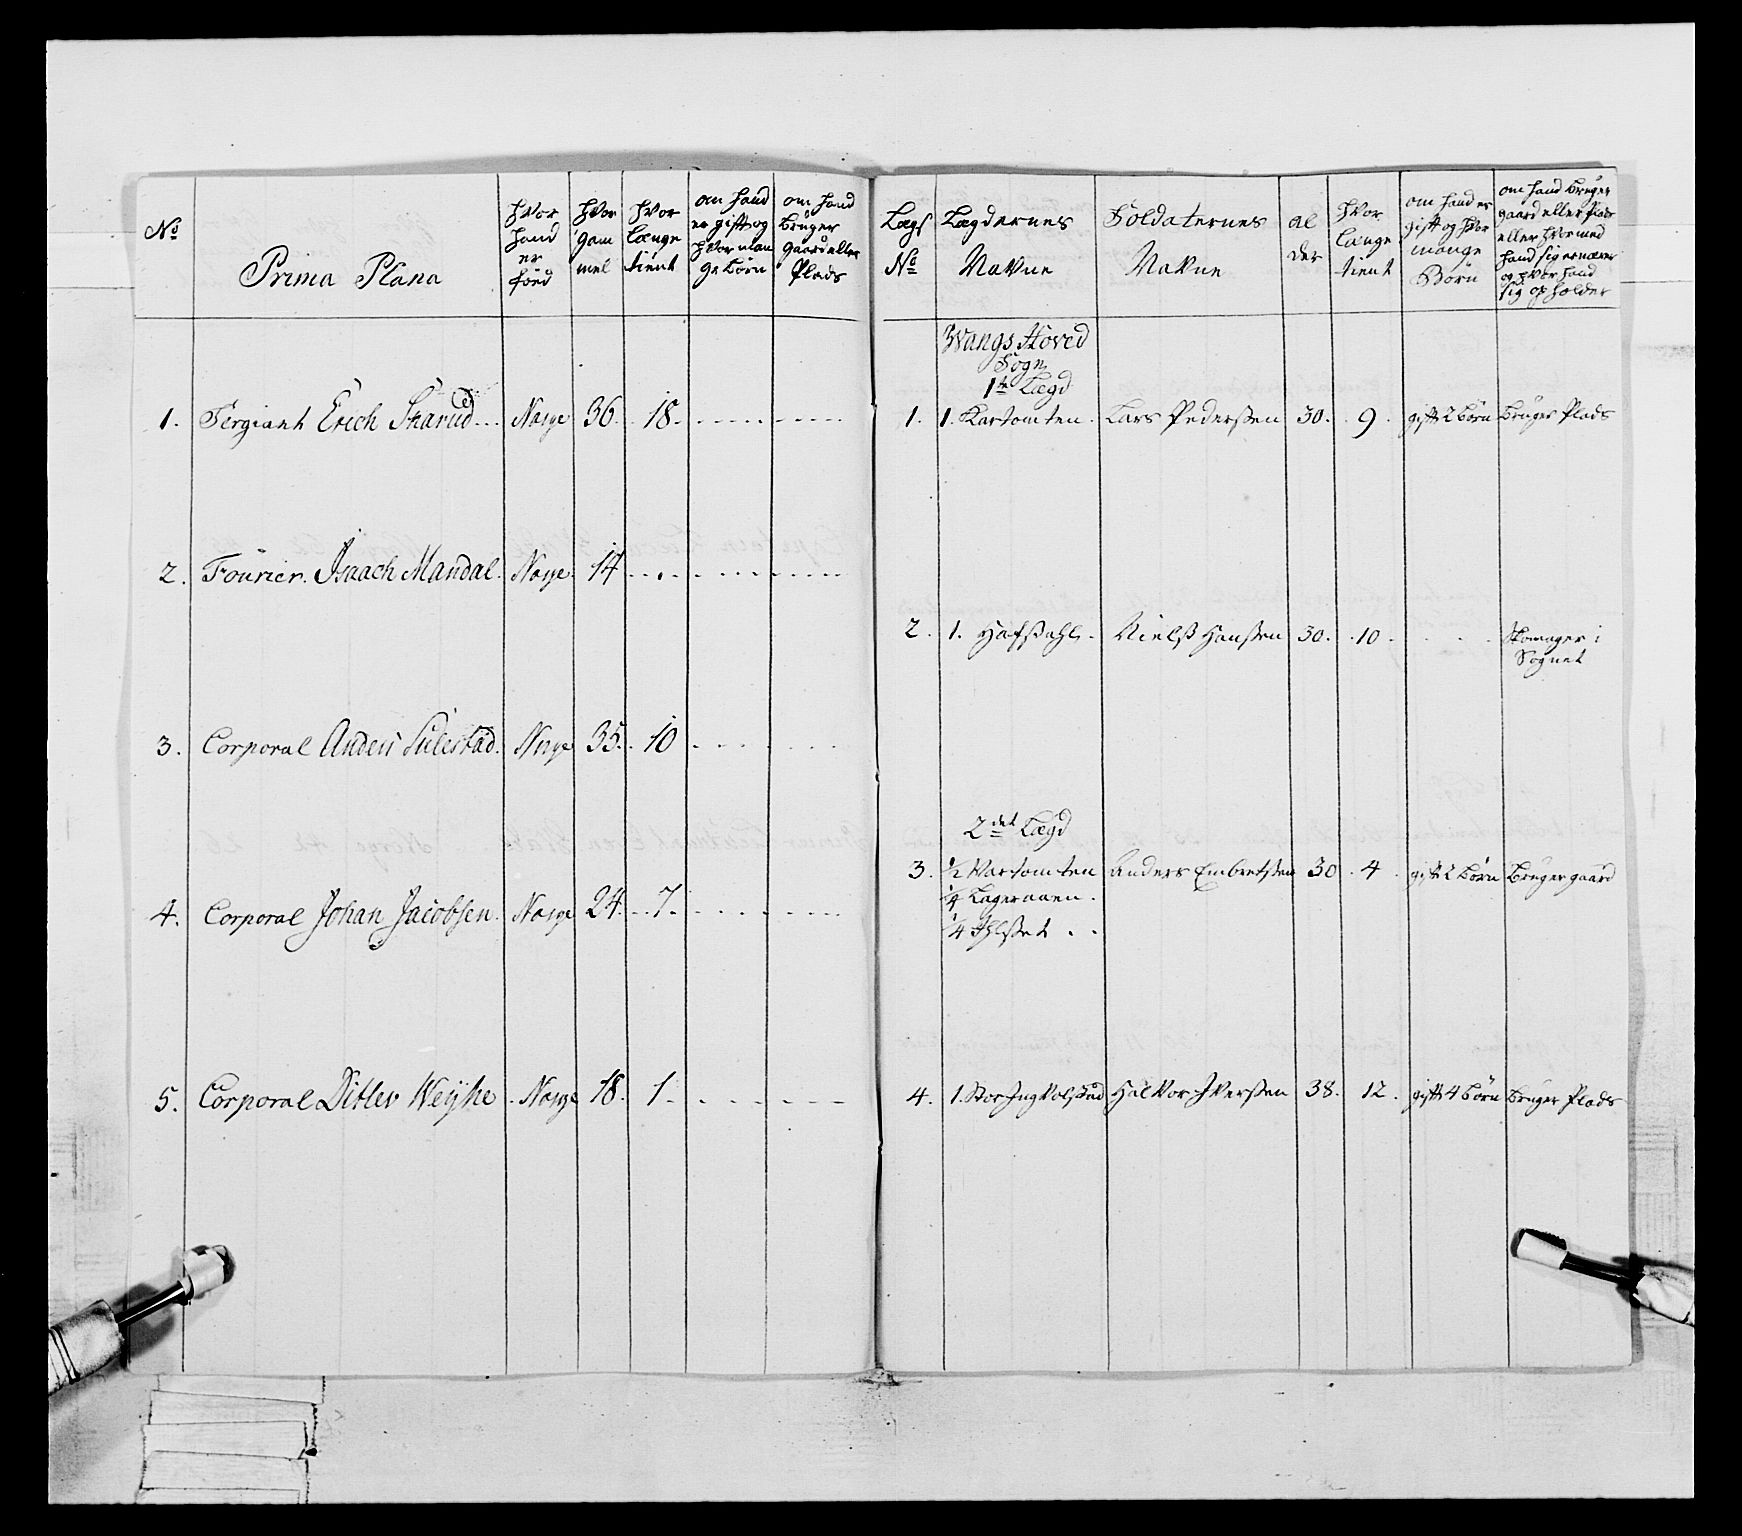 No
Prima Plana
hvor
hand
er
föed
hvor
gam
mel
hvor
længe
tient
om hand
er gift og
hvor man
ge börn
om hand
brüger
gaard eller
Plads
1. Sergiant Erich Skarud Norge 36. 18.
2. Fourier. Isaach Mandal. Norge. 14
3. Corporal Anders Sülestad. Norge 35. 10
4. Corporal Johan Jacobsen. Norge 24. 7.
5. Corporal Ditlev Weyhe. Norge 18. 1.
Lægs
No
Lægdernes
Navne
Soldaternes
Navne
al
der
hvor
længe
tient
om hand er
gift og hvor
mange
Börn
om hand brüger
gaard eller Plads
eller hvormed
hand sig ernærer
og hvor hand
sig opholder
Wangs Hoved
Sogn
1te Lægd
1. 1. Kartomten. Lars Pederssen 30. 9. gift 2 börn brüger Plads
2. 1. Hafstahl. Nielss Hanssen 30. 10. Skomager i
Sognet
2det Lægd
3. 1/2 Kartomten Anders Embretssen 30 4. gift 2 börn brüger gaard
1/4
1/4
4. 1. Stor Ingvolstad Halvor Iverssen 38. 12. gift 4 börn brüger Plads